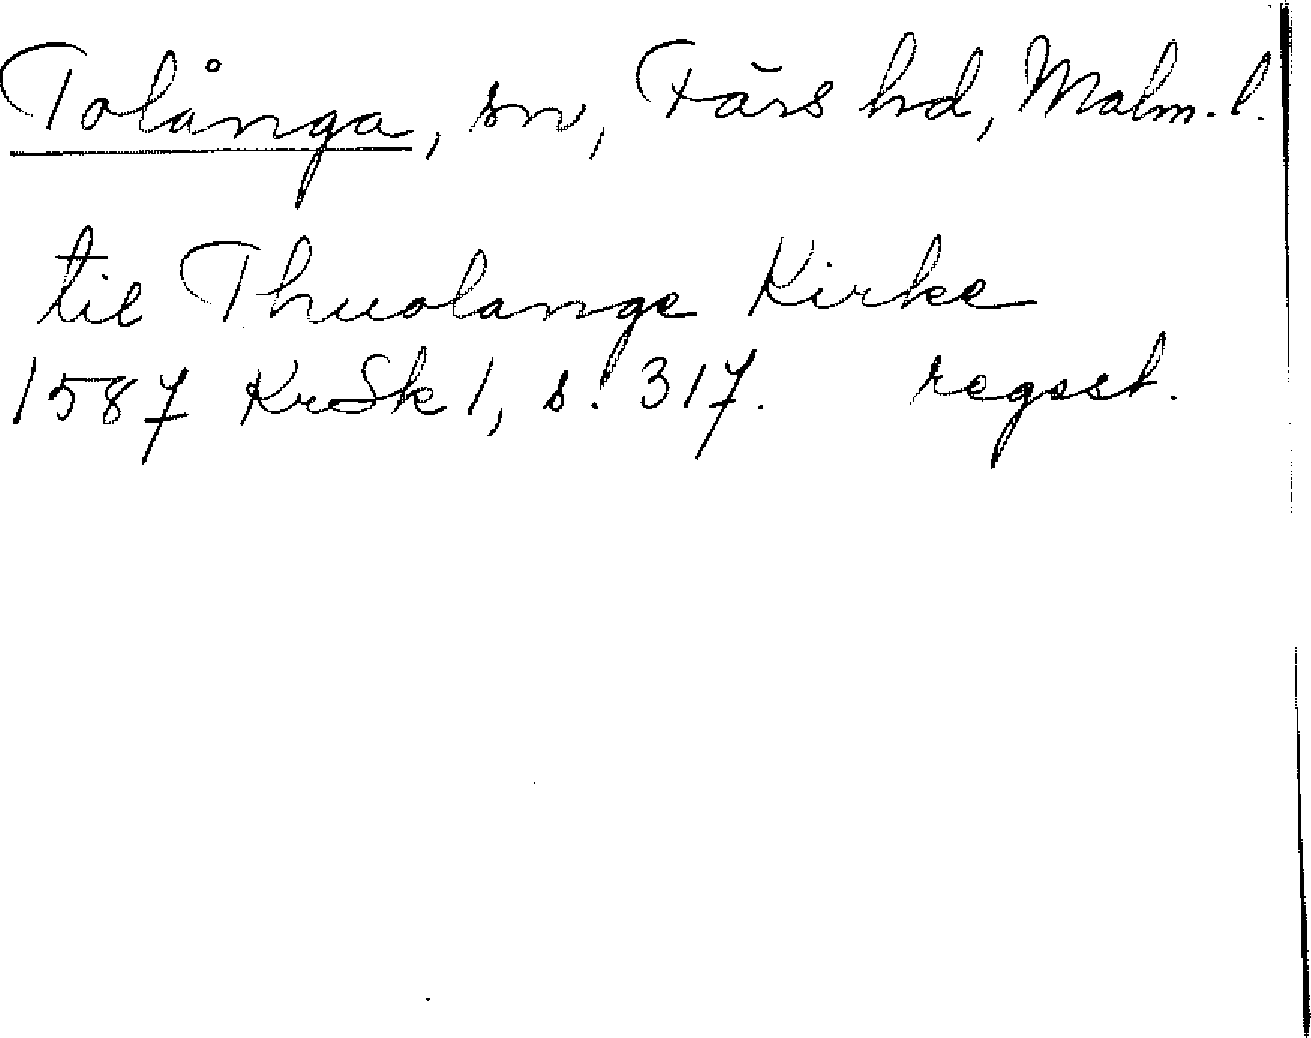 Tolånga, sn, Färs hd, Malm. l.
til Thuolange Kirke
1587 KrSk 1, s. 317. regest.